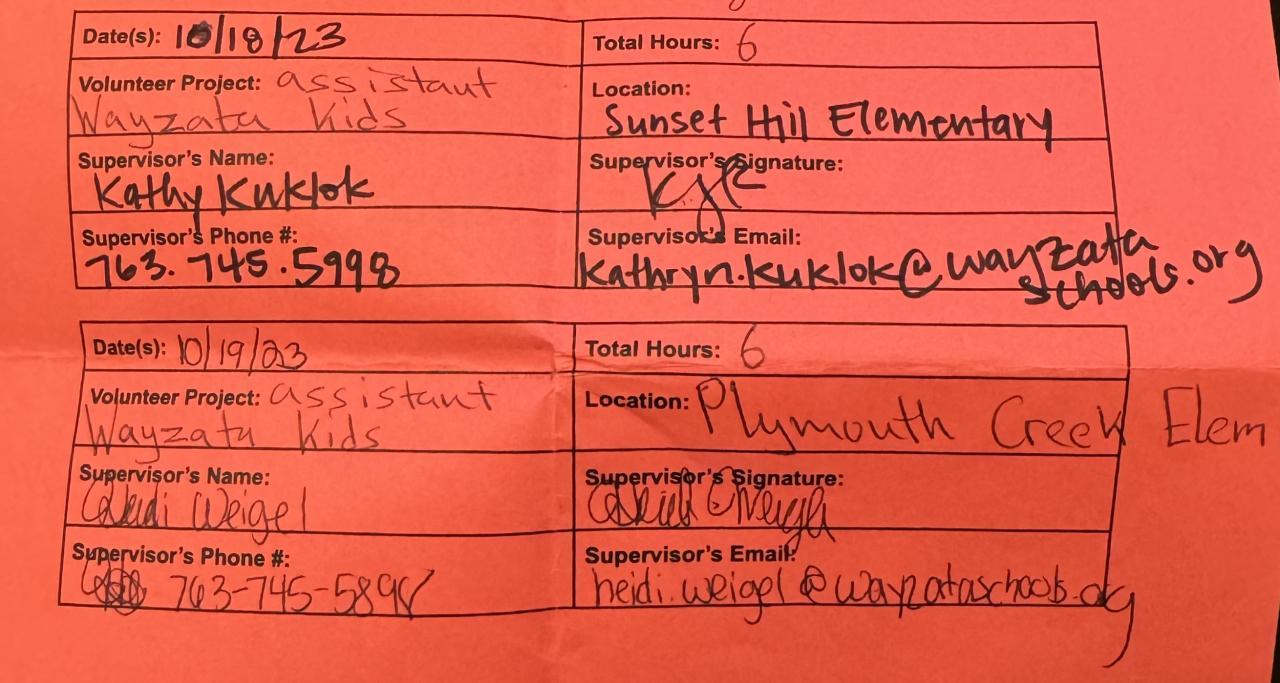 Date(s): 10/18/23
Total Hours: 6
Volunteer Project: assistant
Wayzata Kids
Location:
Sunset Hill Elementary
Supervisor's Name:
Kathy Kuklok
Supervisor's Signature:
Supervisor's Phone #:
763.745.5998
Supervisor's Email:
kathryn.kuklok@wayzata
schools.org
Date(s): 10/19/23
Total Hours: 6
Volunteer Project: assistant
Wayzata Kids
Location: Plymouth Creek Elem
Supervisor's Name:
Heidi Weigel
Supervisor's Signature:
Heidi Weigel
Supervisor's Phone #:
Supervisor's Email:
heidi.weigel@wayzataschools.org